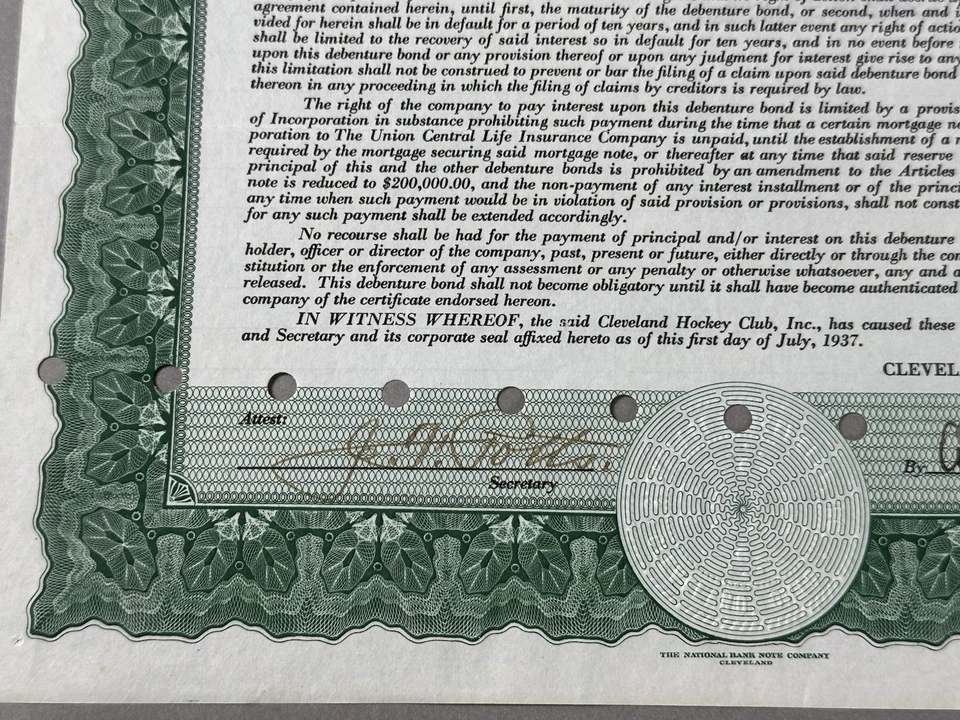 agreement contained herein, until first, the maturity of the debenture bond, or second, when and
vided for herein shall be in default for a period of ten years, and in such latter event any right of actio
shall be limited to the recovery of said interest so in default for ten years, and in no event before
upon this debenture bond or any provision thereof or upon any judgment for interest give rise to any
this limitation shall not be construed to prevent or bar the filing of a claim upon said debenture bond
thereon in any proceeding in which the filing of claims by creditors is required by law.
The right of the company to pay interest upon this debenture bond is limited by a provis
of Incorporation in substance prohibiting such payment during the time that a certain mortgage
poration to The Union Central Life Insurance Company is unpaid, until the establishment of a
required by the mortgage securing said mortgage note, or thereafter at any time that said reserve
principal of this and the other debenture bonds is prohibited by an amendment to the Articles
note is reduced to $200,000.00, and the non-payment of any interest installment or of the princi
any time when such payment would be in violation of said provision or provisions, shall not const
for any such payment shall be extended accordingly.
No recourse shall be had for the payment of principal and/or interest on this debenture
holder, officer or director of the company, past, present or future, either directly or through the
stitution or the enforcement of any assessment or any penalty or otherwise whatsoever, any and a
released. This debenture bond shall not become obligatory until it shall have become authenticated
company of the certificate endorsed hereon.
IN WITNESS WHEREOF, the said Cleveland Hockey Club, Inc., has caused these
and Secretary and its corporate seal affixed hereto as of this first day of July, 1937.
CLEVEL
Attest:
Potts.
By
Secretary
THE NATIONAL BANK NOTE COMPANY
CLEVELAND